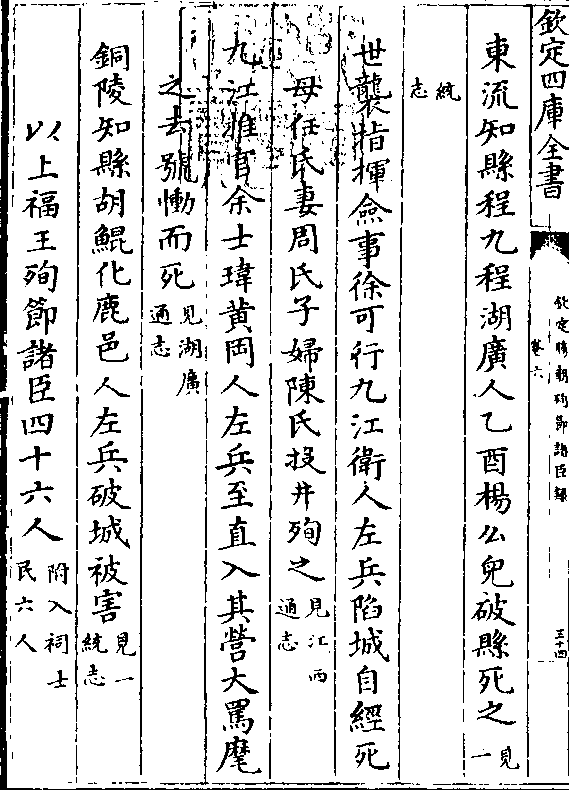 欽定四庫全書
欽定勝朝殉節諸臣錄
卷六
三十四
東流知縣程九程湖廣人乙酉楊么兒破縣死之見一
統志
世襲指揮僉事徐可行九江衛人左兵陷城自經死
母任氏妻周氏子婦陳氏投井殉之見江西通志
九江推官余士瑋黃岡人左兵至直入其營大罵麾
之去號慟而死見湖廣通志
銅陵知縣胡鯤化鹿邑人左兵破城被害見一統志
以上福王殉節諸臣四十六人附入祠士民六人